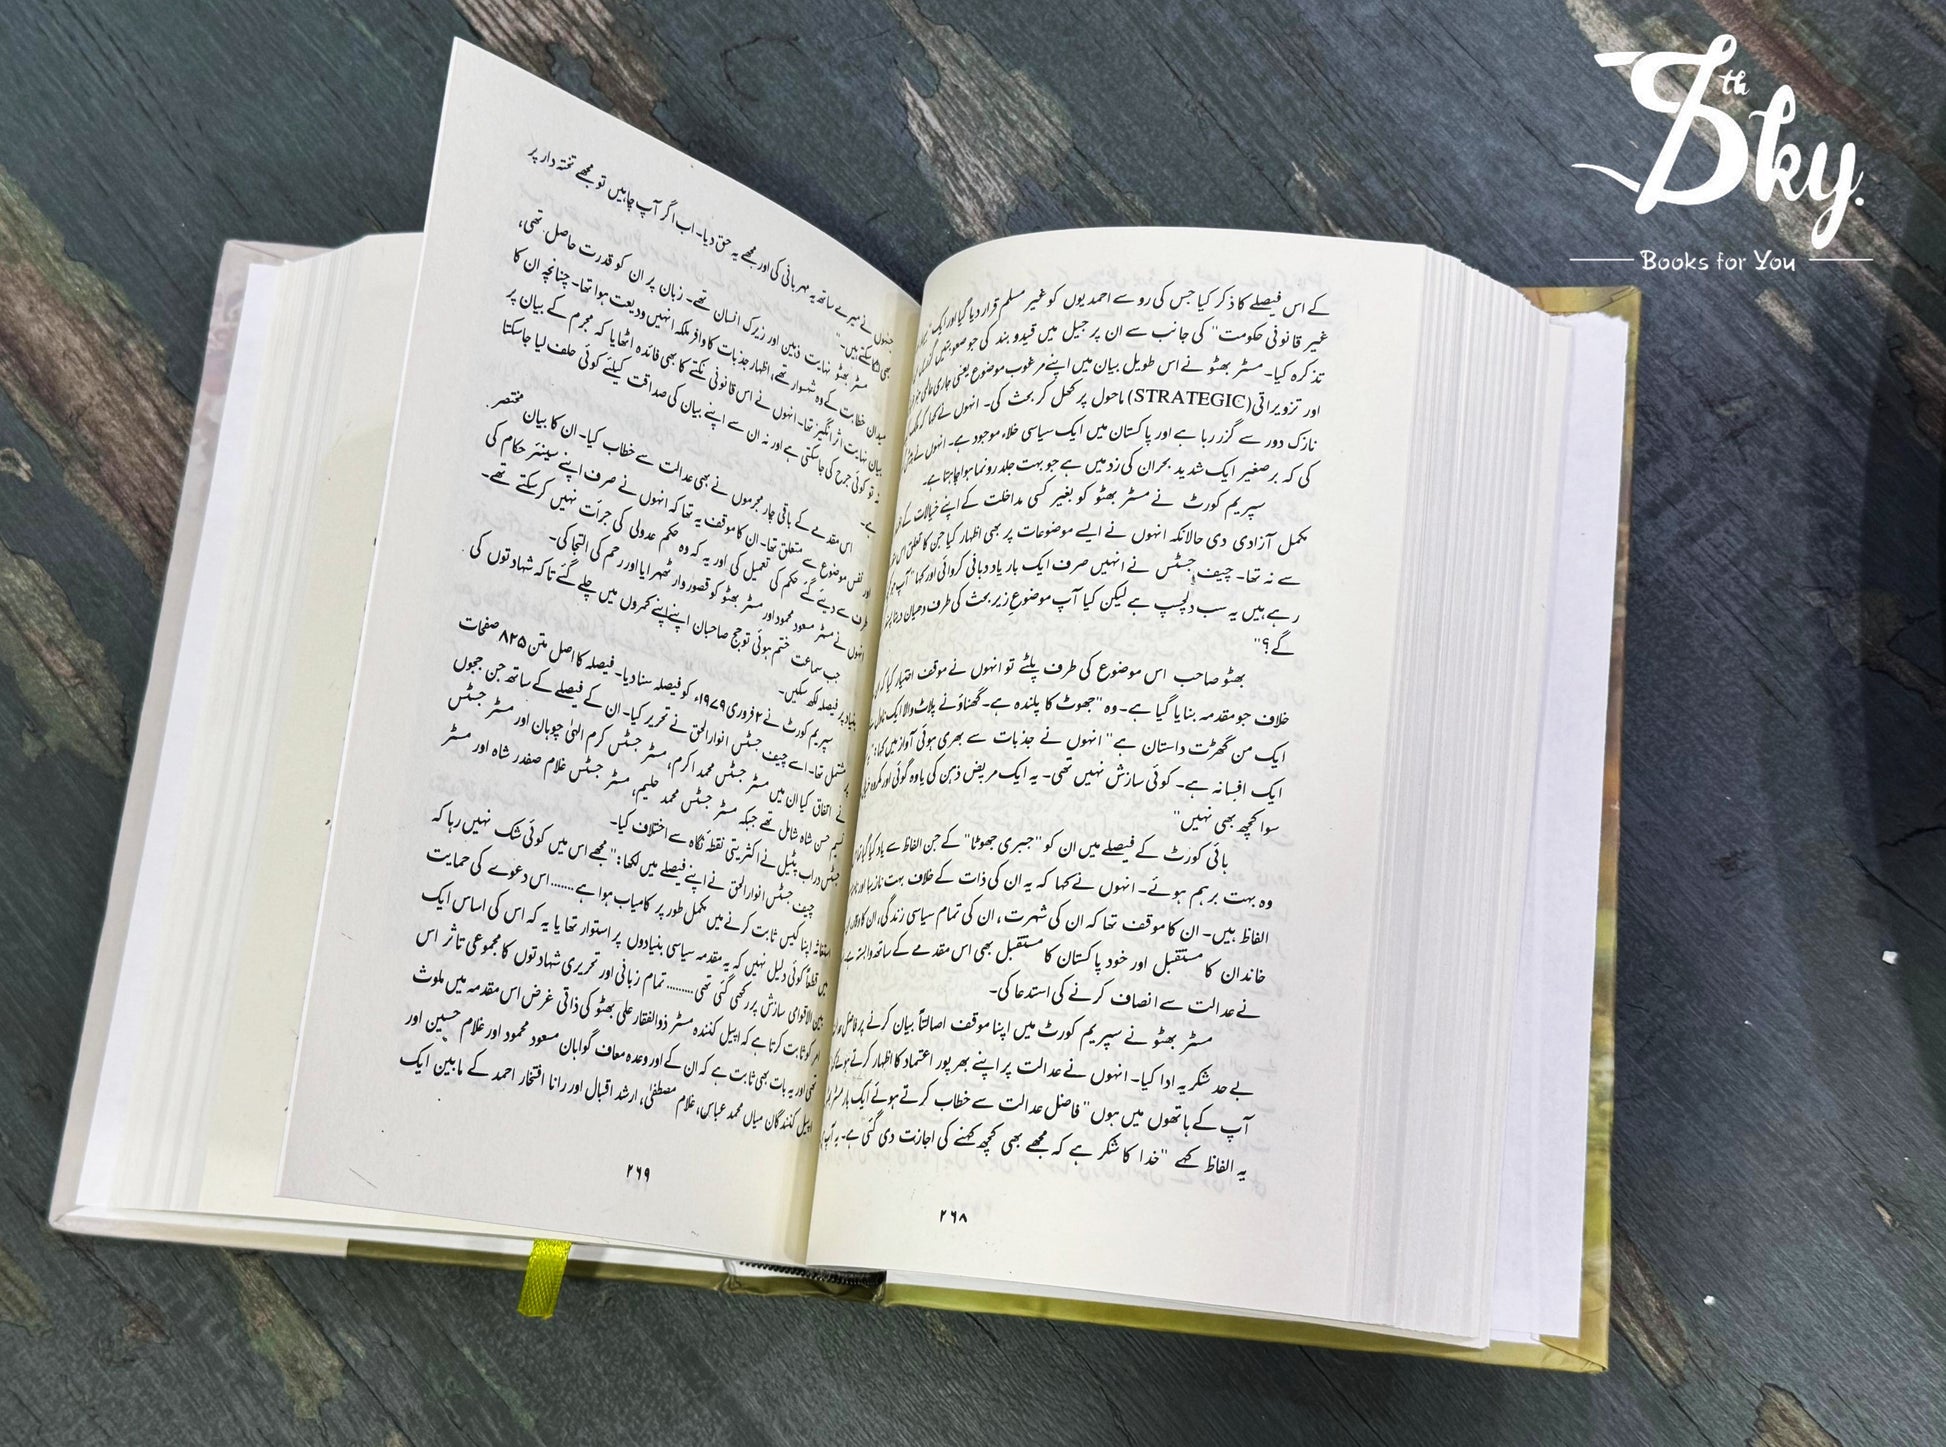 کے اس فیصلے کا ذکر کیا جس کی رو سے احمدیوں کو غیر مسلم قرار دیا گیا اور ایک
غیر قانونی حکومت" کی جانب سے ان پر جیل میں قید و بند کی جو صعوبتیں
تذکرہ کیا۔ مسٹر بھٹو نے اس طویل بیان میں اپنے مرغوب موضوع یعنی جاری عالمی
اور تزویراتی (STRATEGIC) ماحول پر کھل کر بحث کی۔ انہوں نے کہا کہ
نازک دور سے گزر رہا ہے اور پاکستان میں ایک سیاسی خلاء موجود ہے۔ انہوں نے
کی کہ برصغیر ایک شدید بحران کی زد میں ہے جو بہت جلد رونما ہوا چاہتا ہے۔
سپریم کورٹ نے مسٹر بھٹو کو بغیر کسی مداخلت کے اپنے خیالات کے
مکمل آزادی دی حالانکہ انہوں نے ایسے موضوعات پر بھی اظہار کیا جن کا تعلق اس
سے نہ تھا۔ چیف جسٹس نے انہیں صرف ایک بار یاد دہانی کروائی اور کہا "آپ جو
رہے ہیں یہ سب دلچسپ ہے لیکن کیا آپ موضوعِ زیر بحث کی طرف دھیان دینا
گے؟"
بھٹو صاحب اس موضوع کی طرف پلٹے تو انہوں نے موقف اختیار کیا کہ
خلاف جو مقدمہ بنایا گیا ہے۔ وہ "جھوٹ کا پلندہ ہے۔ گھناؤنے پلاٹ والا ایک ناول
ایک من گھڑت داستان ہے" انہوں نے جذبات سے بھری ہوئی آواز میں کہا:
ایک افسانہ ہے۔ کوئی سازش نہیں تھی۔ یہ ایک مریض ذہن کی یاوہ گوئی اور
سوا کچھ بھی نہیں"
ہائی کورٹ کے فیصلے میں ان کو "جبری جھوٹا" کے جن الفاظ سے یاد کیا گیا تھا
وہ بہت برہم ہوئے۔ انہوں نے کہا کہ یہ ان کی ذات کے خلاف بہت نازیبا اور
الفاظ ہیں۔ ان کا موقف تھا کہ ان کی شہرت، ان کی تمام سیاسی زندگی، ان کا وقار
خاندان کا مستقبل اور خود پاکستان کا مستقبل بھی اس مقدمے کے ساتھ وابستہ ہے۔
نے عدالت سے انصاف کرنے کی استدعا کی۔
مسٹر بھٹو نے سپریم کورٹ میں اپنا موقف اصالتاً بیان کرنے پر فاضل
بے حد شکریہ ادا کیا۔ انہوں نے عدالت پر اپنے بھرپور اعتماد کا اظہار کرتے ہوئے
آپ کے ہاتھوں میں ہوں" فاضل عدالت سے خطاب کرتے ہوئے ایک بار مسٹر
یہ الفاظ کہے "خدا کا شکر ہے کہ مجھے بھی کچھ کہنے کی اجازت دی گئی ہے۔ یہ آپ
۲۶۸
جنہوں نے میرے ساتھ یہ مہربانی کی اور مجھے یہ حق دیا۔ اب اگر آپ چاہیں تو مجھے تختہ دار پر
بھی لٹکا سکتے ہیں۔"
مسٹر بھٹو نہایت ذہین اور زیرک انسان تھے۔ زبان پر ان کو قدرت حاصل تھی،
میدان خطابت کے وہ شہسوار تھے، اظہار جذبات کا وافر ملکہ انہیں ودیعت ہوا تھا۔ چنانچہ ان کا
بیان نہایت اثر انگیز تھا۔ انہوں نے اس قانونی نکتے کا بھی فائدہ اٹھایا کہ مجرم کے بیان پر
نہ تو کوئی جرح کی جا سکتی ہے اور نہ ان سے اپنے بیان کی صداقت کیلئے کوئی حلف لیا جا سکتا
ہے۔
اس مقدمے کے باقی چار مجرموں نے بھی عدالت سے خطاب کیا۔ ان کا بیان مختصر
اور نفس موضوع سے متعلق تھا۔ ان کا موقف یہ تھا کہ انہوں نے صرف اپنے سینئر حکام کی
طرف سے دیئے گئے حکم کی تعمیل کی اور یہ کہ وہ حکم عدولی کی جرأت نہیں کر سکتے تھے۔
انہوں نے مسٹر مسعود محمود اور مسٹر بھٹو کو قصوروار ٹھہرایا اور رحم کی التجا کی۔
جب سماعت ختم ہوئی تو جج صاحبان اپنے اپنے کمروں میں چلے گئے تاکہ شہادتوں کی
بنیاد پر فیصلہ لکھ سکیں۔
سپریم کورٹ نے ۲ فروری ۱۹۷۹ء کو فیصلہ سنا دیا۔ فیصلہ کا اصل متن ۸۲۵ صفحات
پر مشتمل تھا۔ اسے چیف جسٹس انوارالحق نے تحریر کیا۔ ان کے فیصلے کے ساتھ جن ججوں
نے اتفاق کیا ان میں مسٹر جسٹس محمد اکرم، مسٹر جسٹس کرم الہٰی چوہان اور مسٹر جسٹس
نسیم حسن شاہ شامل تھے جبکہ مسٹر جسٹس محمد حلیم، مسٹر جسٹس غلام صفدر شاہ اور مسٹر
جسٹس دراب پٹیل نے اکثریتی نقطۂ نگاہ سے اختلاف کیا۔
چیف جسٹس انوارالحق نے اپنے فیصلے میں لکھا: "مجھے اس میں کوئی شک نہیں رہا کہ
استغاثہ اپنا کیس ثابت کرنے میں مکمل طور پر کامیاب ہوا ہے ....... اس دعوے کی حمایت
میں قطعاً کوئی دلیل نہیں کہ یہ مقدمہ سیاسی بنیادوں پر استوار تھا یا یہ کہ اس کی اساس ایک
بین الاقوامی سازش پر رکھی گئی تھی ......... تمام زبانی اور تحریری شہادتوں کا مجموعی تاثر اس
امر کو ثابت کرتا ہے کہ اپیل کنندہ مسٹر ذوالفقار علی بھٹو کی ذاتی غرض اس مقدمہ میں ملوث
تھی اور یہ بات بھی ثابت ہے کہ ان کے اور وعدہ معاف گواہان مسعود محمود اور غلام حسین اور
اپیل کنندگان میاں محمد عباس، غلام مصطفیٰ، ارشد اقبال اور رانا افتخار احمد کے مابین ایک
۲۶۹
7th Sky.
Books for You